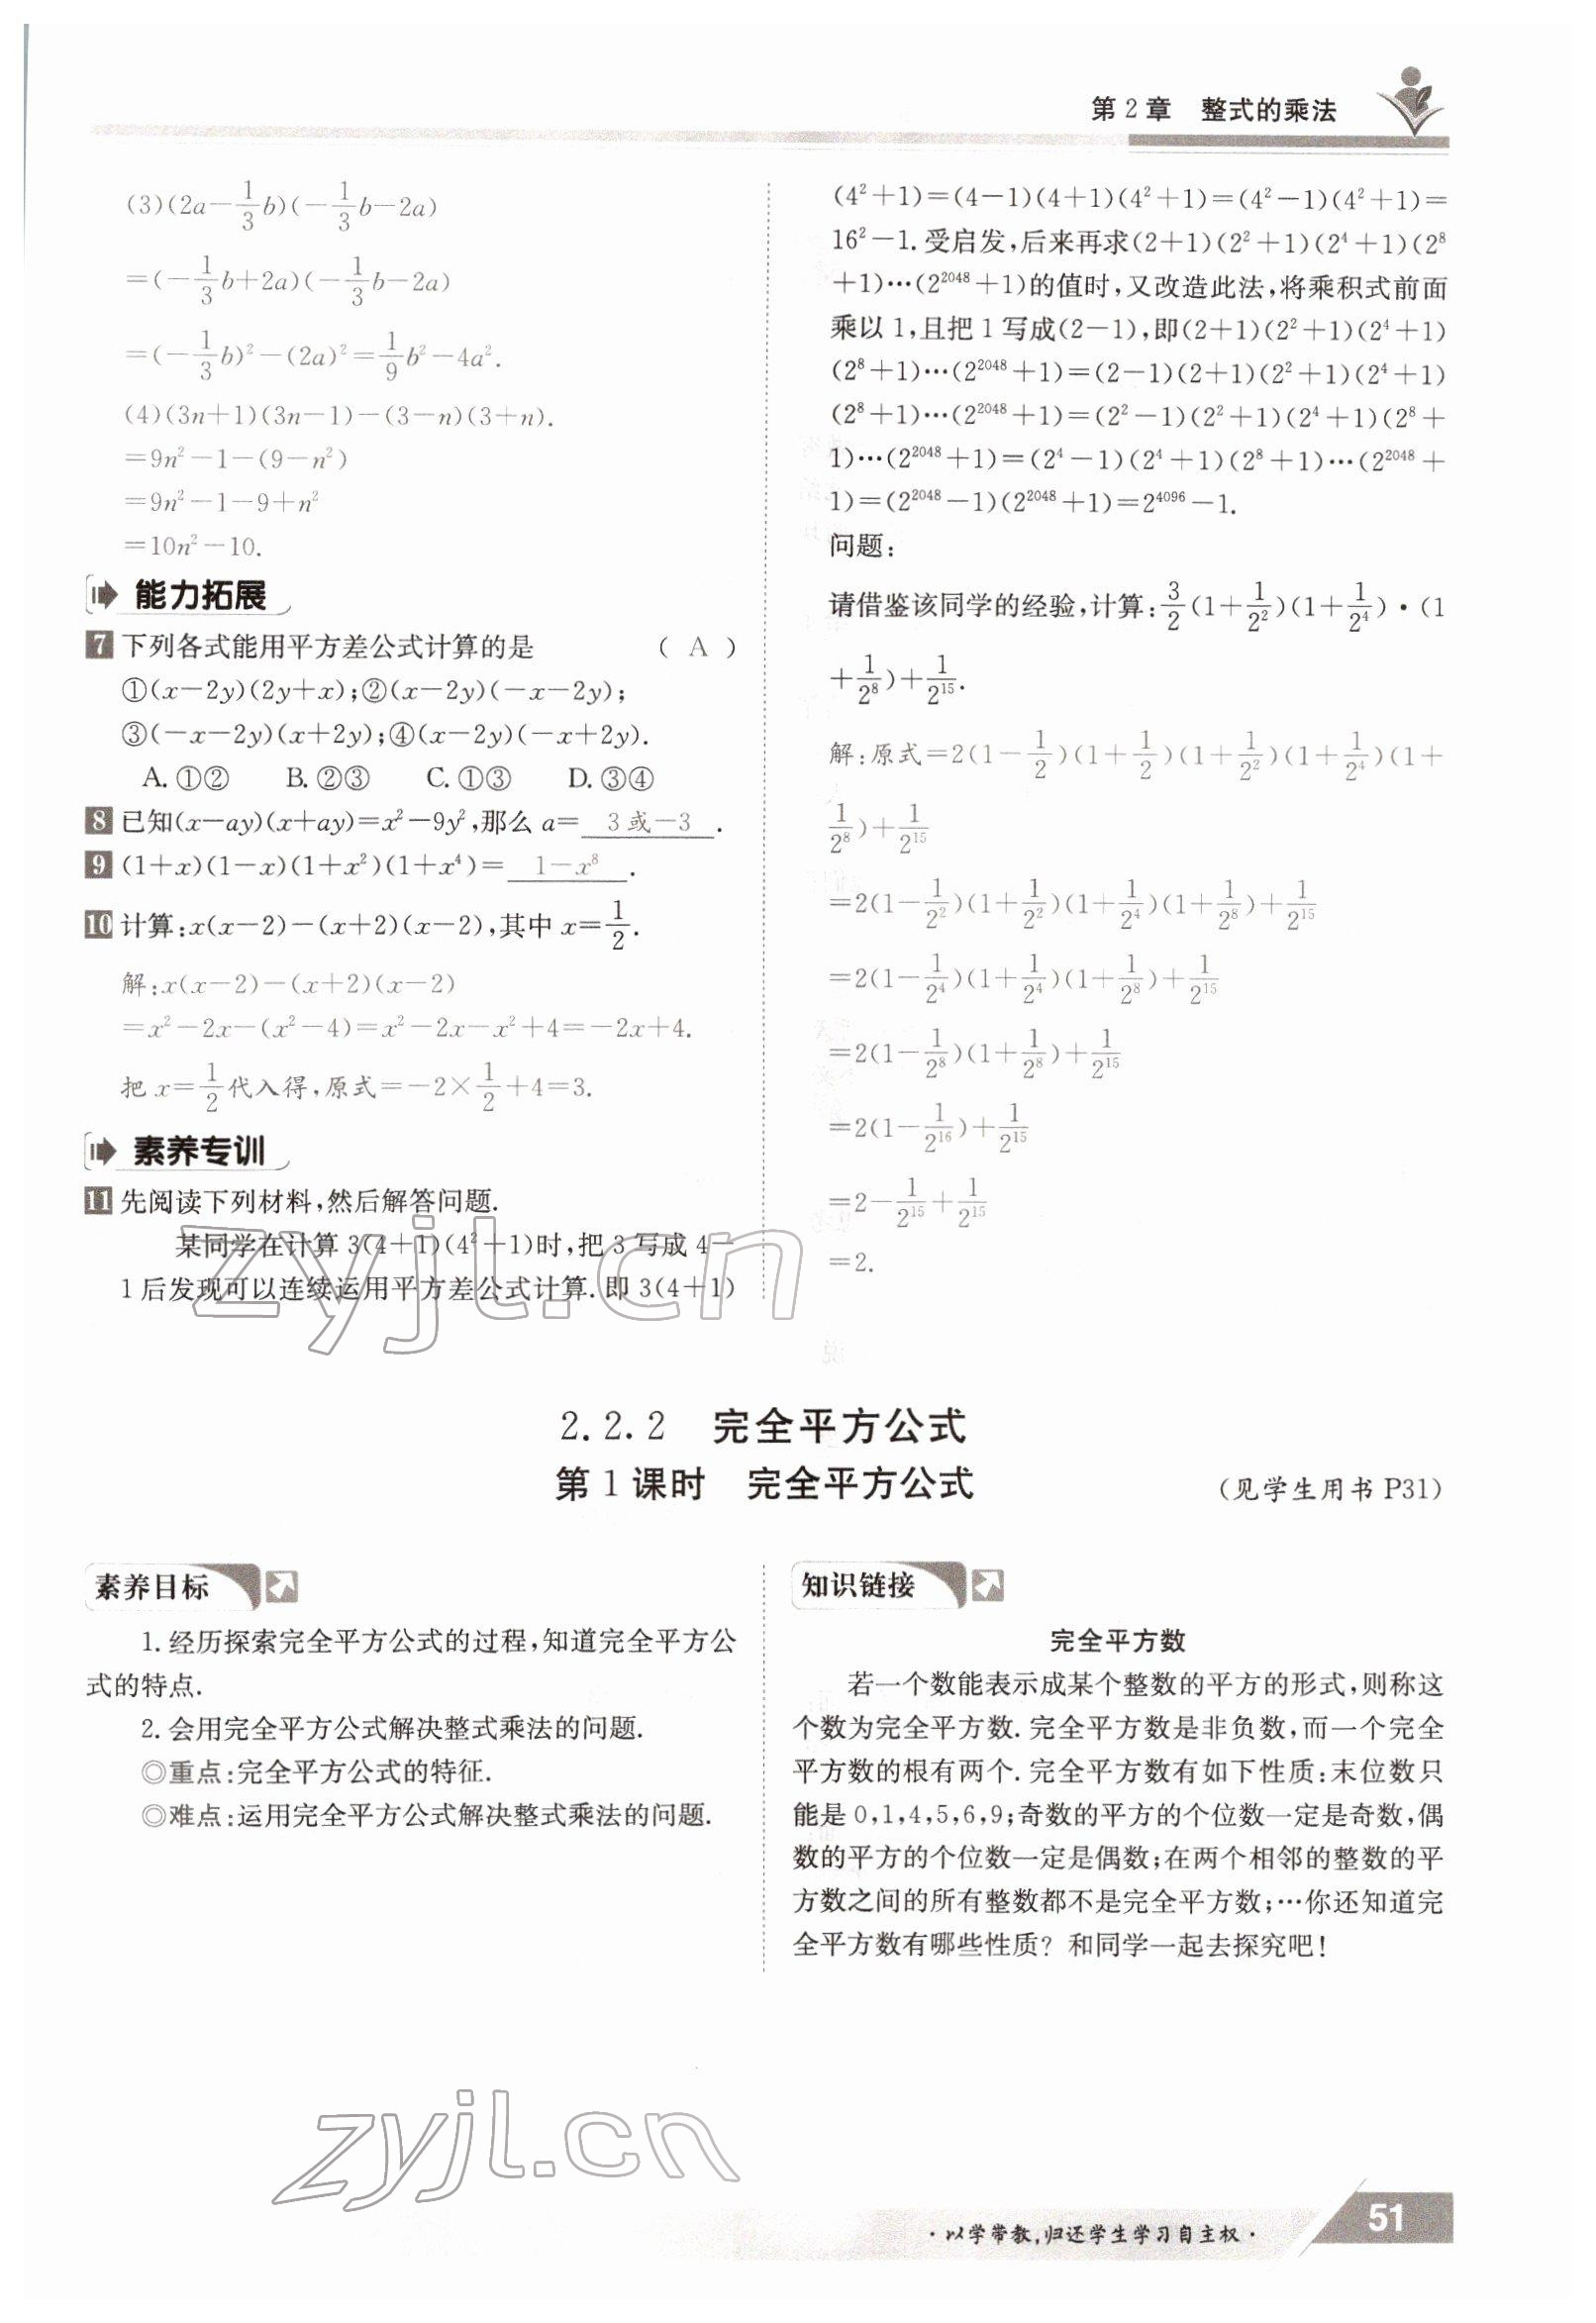 第2章 整式的乘法
(3)(2a-1/3b)(-1/3b-2a)
=(-1/3b+2a)(-1/3b-2a)
=(-1/3b)²-(2a)²=1/9b²-4a².
(4)(3n+1)(3n-1)-(3-n)(3+n).
=9n²-1-(9-n²)
=9n²-1-9+n²
=10n²-10.
能力拓展
7 下列各式能用平方差公式计算的是 ( A )
①(x-2y)(2y+x);②(x-2y)(-x-2y);
③(-x-2y)(x+2y);④(x-2y)(-x+2y).
A. ①② B. ②③ C. ①③ D. ③④
8 已知(x-ay)(x+ay)=x²-9y²,那么 a= 3或-3 .
9 (1+x)(1-x)(1+x²)(1+x⁴)= 1-x⁸ .
10 计算:x(x-2)-(x+2)(x-2),其中 x=1/2.
解:x(x-2)-(x+2)(x-2)
=x²-2x-(x²-4)=x²-2x-x²+4=-2x+4.
把 x=1/2代入得,原式=-2×1/2+4=3.
素养专训
11 先阅读下列材料,然后解答问题.
某同学在计算 3(4+1)(4²+1)时,把 3 写成 4-
1后发现可以连续运用平方差公式计算.即 3(4+1)
(4²+1)=(4-1)(4+1)(4²+1)=(4²-1)(4²+1)=
16²-1.受启发,后来再求(2+1)(2²+1)(2⁴+1)(2⁸
+1)…(2²⁰⁴⁸+1)的值时,又改造此法,将乘积式前面
乘以1,且把1写成(2-1),即(2+1)(2²+1)(2⁴+1)
(2⁸+1)…(2²⁰⁴⁸+1)=(2-1)(2+1)(2²+1)(2⁴+1)
(2⁸+1)…(2²⁰⁴⁸+1)=(2²-1)(2²+1)(2⁴+1)(2⁸+
1)…(2²⁰⁴⁸+1)=(2⁴-1)(2⁴+1)(2⁸+1)…(2²⁰⁴⁸+
1)=(2²⁰⁴⁸-1)(2²⁰⁴⁸+1)=2⁴⁰⁹⁶-1.
问题:
请借鉴该同学的经验,计算:3/2(1+1/2²)(1+1/2⁴)·(1
+1/2⁸)+1/2¹⁵.
解:原式=2(1-1/2)(1+1/2)(1+1/2²)(1+1/2⁴)(1+
1/2⁸)+1/2¹⁵
=2(1-1/2²)(1+1/2²)(1+1/2⁴)(1+1/2⁸)+1/2¹⁵
=2(1-1/2⁴)(1+1/2⁴)(1+1/2⁸)+1/2¹⁵
=2(1-1/2⁸)(1+1/2⁸)+1/2¹⁵
=2(1-1/2¹⁶)+1/2¹⁵
=2-1/2¹⁵+1/2¹⁵
=2.
zyjl.cn
2.2.2 完全平方公式
第1课时 完全平方公式
(见学生用书 P31)
素养目标
1. 经历探索完全平方公式的过程,知道完全平方公
式的特点.
2. 会用完全平方公式解决整式乘法的问题.
◎重点:完全平方公式的特征.
◎难点:运用完全平方公式解决整式乘法的问题.
知识链接
完全平方数
若一个数能表示成某个整数的平方的形式,则称这
个数为完全平方数.完全平方数是非负数,而一个完全
平方数的根有两个.完全平方数有如下性质:末位数只
能是 0,1,4,5,6,9;奇数的平方的个位数一定是奇数,偶
数的平方的个位数一定是偶数;在两个相邻的整数的平
方数之间的所有整数都不是完全平方数;…你还知道完
全平方数有哪些性质? 和同学一起去探究吧!
zyjl.cn
·以学带教,归还学生学习自主权·
51